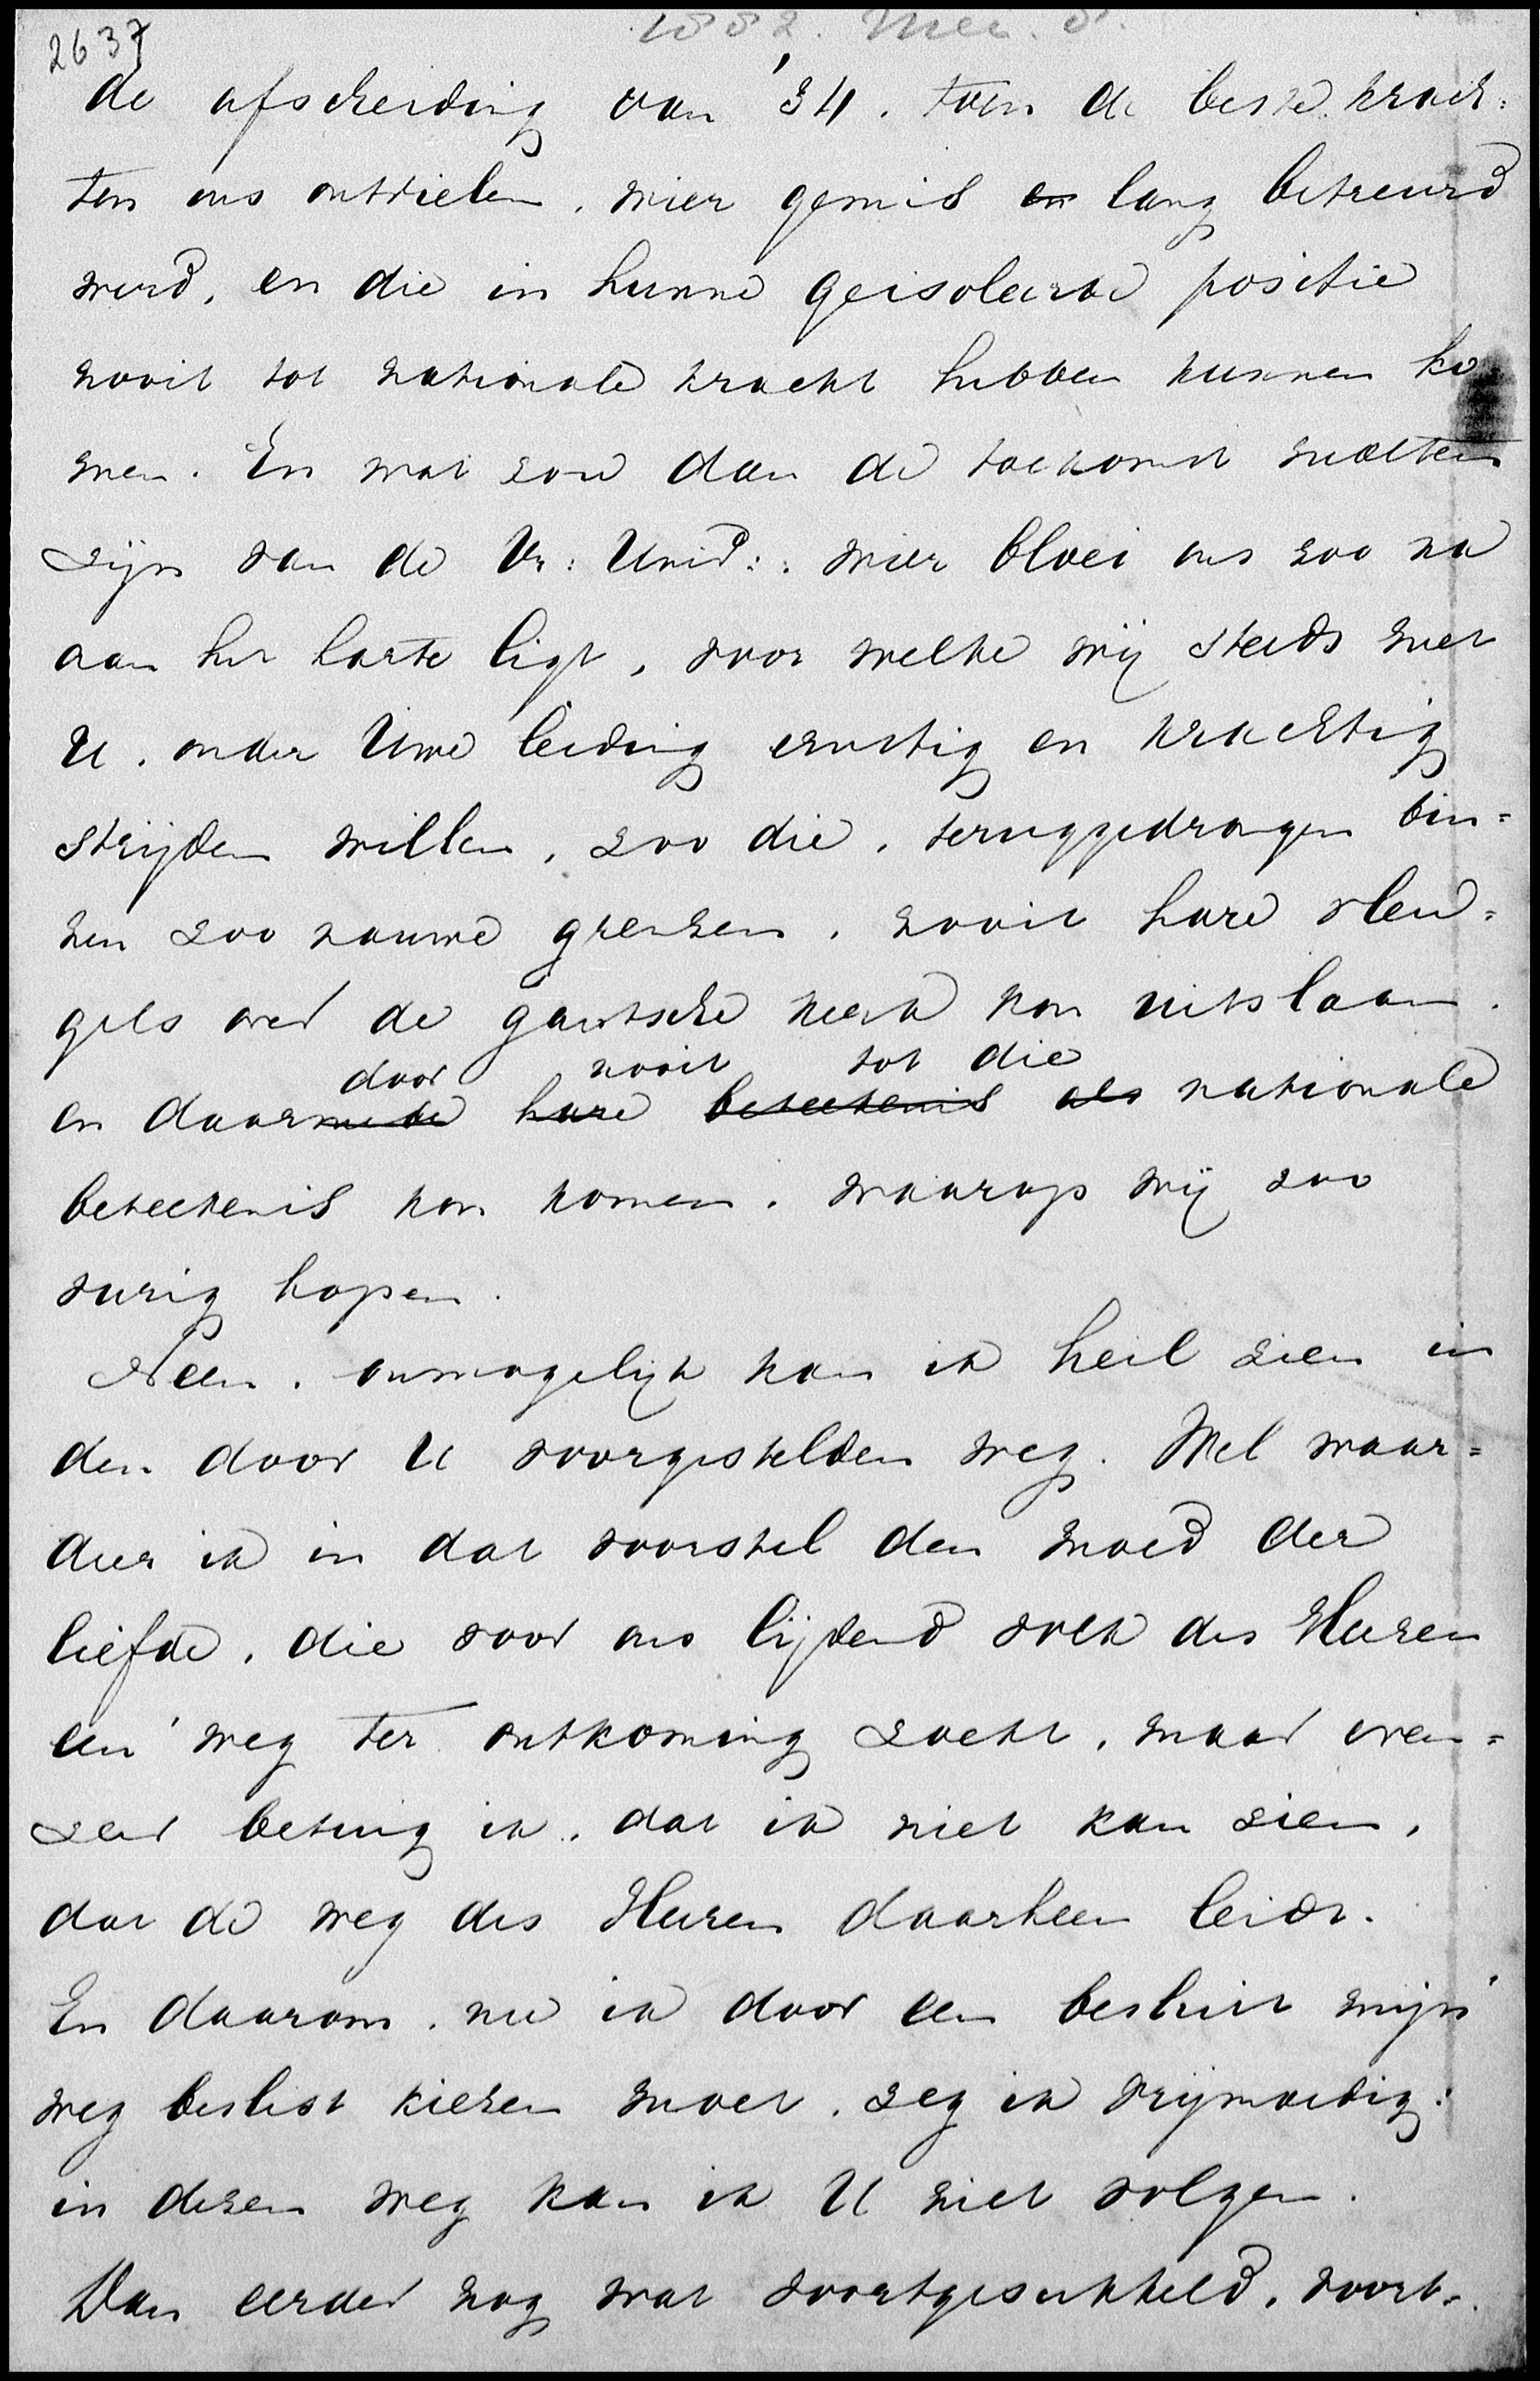 1882. Mei. 8.
2637
de afscheiding van '34. toen de beste krach:
ten ons ontvielen, wier gemis en lang betreurd
werd, en die in hunne geisoleerde positie
nooit tot nationale kracht hebben kunnen ko
men. En wat zou dan de toekomst moeten
zijn van de Vr: Univ:: wier bloei ons zoo na
aan het harte ligt, voor welke wij steeds met
U. onder Uwe leiding ernstig en krachtig
strijden willen, zoo die, teruggedrongen bin=
nen zoo nauwe grenzen, nooit hare vleu=
gels over de gantsche kerk kon uitslaan.
door nooit tot die
en daarmede hare beteekenis als nationale
beteekenis kon komen, waarop wij zoo
vurig hopen.
Neen, onmogelijk kan ik heil zien in
den door U voorgestelden weg. Wel waar=
deer ik in dat voorstel den moed der
liefde, die voor ons lijdend volk des Heeren
een' weg ter ontkoming zoekt, maar even=
zeer betuig ik, dat ik niet kan zien,
dat de weg des Heeren daarheen leidt.
En daarom, nu ik door een besluit mijn'
weg beslist kiezen moet, zeg ik vrijmoedig:
in dezen weg kan ik U niet volgen.
Dan eerder nog wat voortgesukkeld, voort=